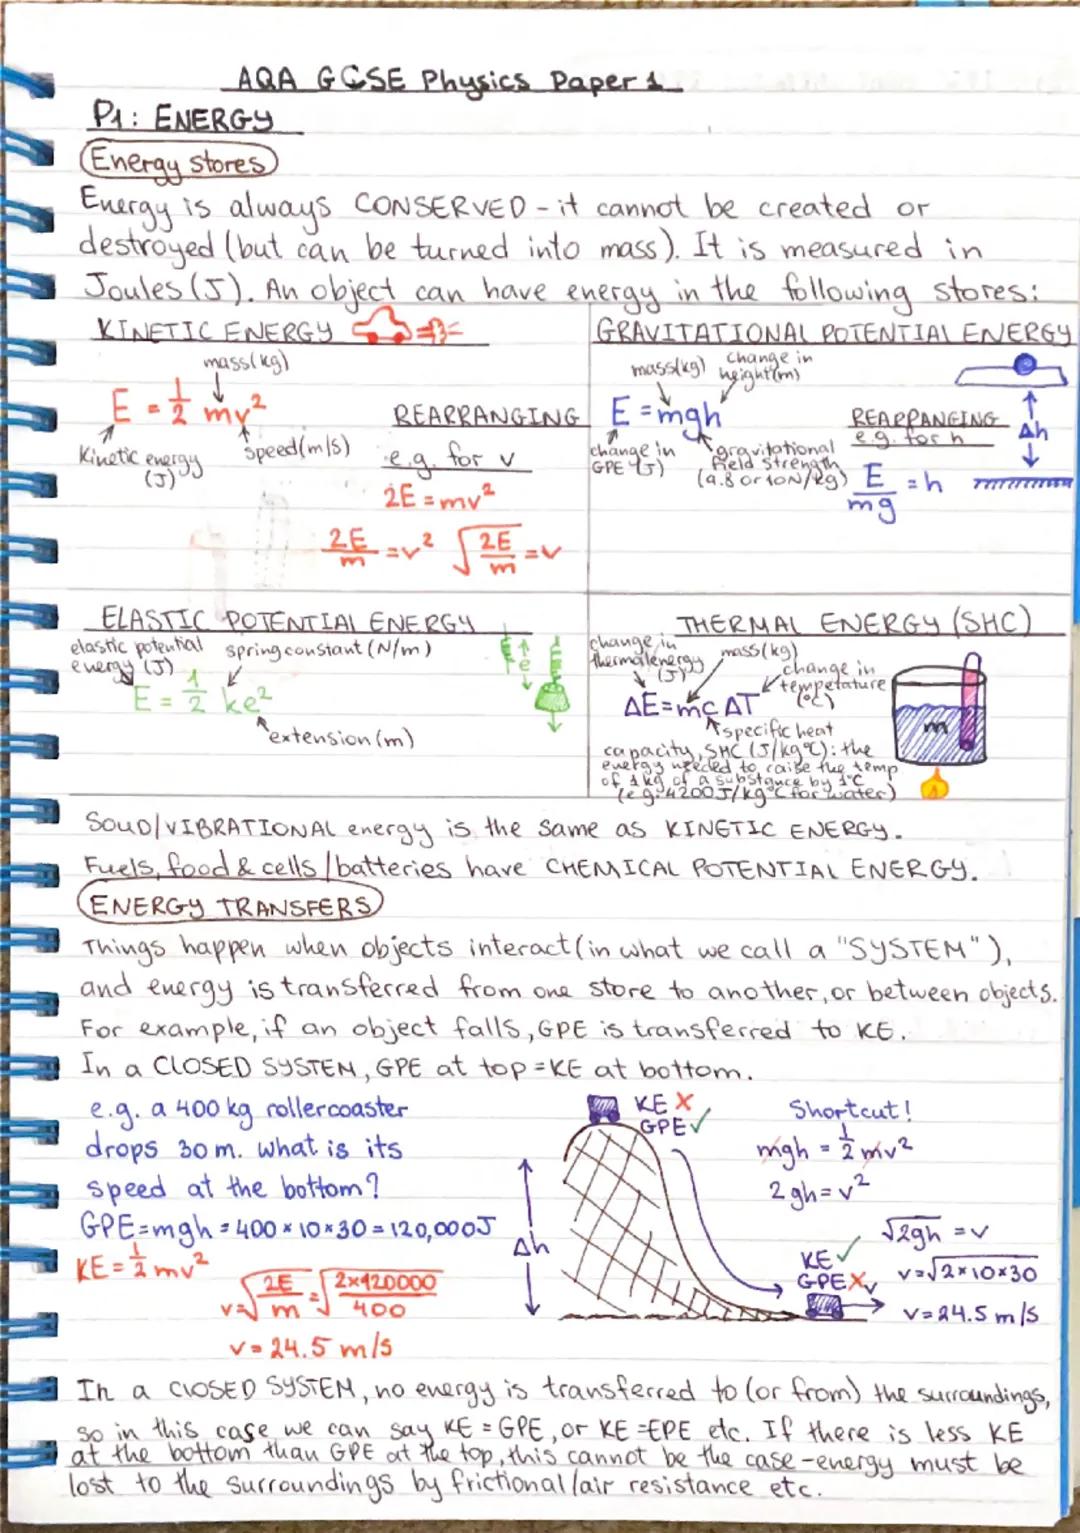 AQA GCSE Physics Paper 1
P1: ENERGY
Energy stores
Energy is always CONSERVED - it cannot be created or
destroyed (but can be turned into mass). It is measured in
Joules (J). An object can have energy in the following stores:
KINETIC ENERGY
mass (kg)
E = 1/2 mv²
Kinetic energy
(J)
speed (m/s)
REARRANGING
e.g. for v
2E = mv²
2E/m = v² √(2E/m) = v
GRAVITATIONAL POTENTIAL ENERGY
mass (kg) change in
height (m)
E = mgh
change in
GPE (J)
gravitational
field strength
(9.8 or 10N/kg)
REARRANGING
e.g. for h
E/mg = h
Δh
ELASTIC POTENTIAL ENERGY
elastic potential
energy (J)
spring constant (N/m)
E = 1/2 ke²
extension (m)
e
THERMAL ENERGY (SHC)
change in
thermal energy
(J)
mass (kg)
change in
tempetature
(°C)
ΔE = mcΔT
specific heat
capacity, SHC (J/kg°C): the
energy needed to raise the temp
of 1 kg of a substance by 1°C
(e.g. 4200J/kg°C for water)
m
SOUD/VIBRATIONAL energy is the same as KINETIC ENERGY.
Fuels, food & cells/batteries have CHEMICAL POTENTIAL ENERGY.
ENERGY TRANSFERS
Things happen when objects interact (in what we call a "SYSTEM"),
and energy is transferred from one store to another, or between objects.
For example, if an object falls, GPE is transferred to KE.
In a CLOSED SYSTEM, GPE at top = KE at bottom.
e.g. a 400 kg rollercoaster
drops 30 m. what is its
speed at the bottom?
GPE = mgh = 400 × 10 × 30 = 120,000J
KE = 1/2 mv²
v = √(2E/m) = √(2×120000/400)
v = 24.5 m/s
KE X
GPE ✓
Δh
KE ✓
GPE X
v
Shortcut!
mgh = 1/2 mv²
2gh = v²
√2gh = v
v = √2×10×30
v = 24.5 m/s
In a CLOSED SYSTEM, no energy is transferred to (or from) the surroundings,
so in this case we can say KE = GPE, or KE = EPE etc. If there is less KE
at the bottom than GPE at the top, this cannot be the case - energy must be
lost to the surroundings by frictional/air resistance etc.